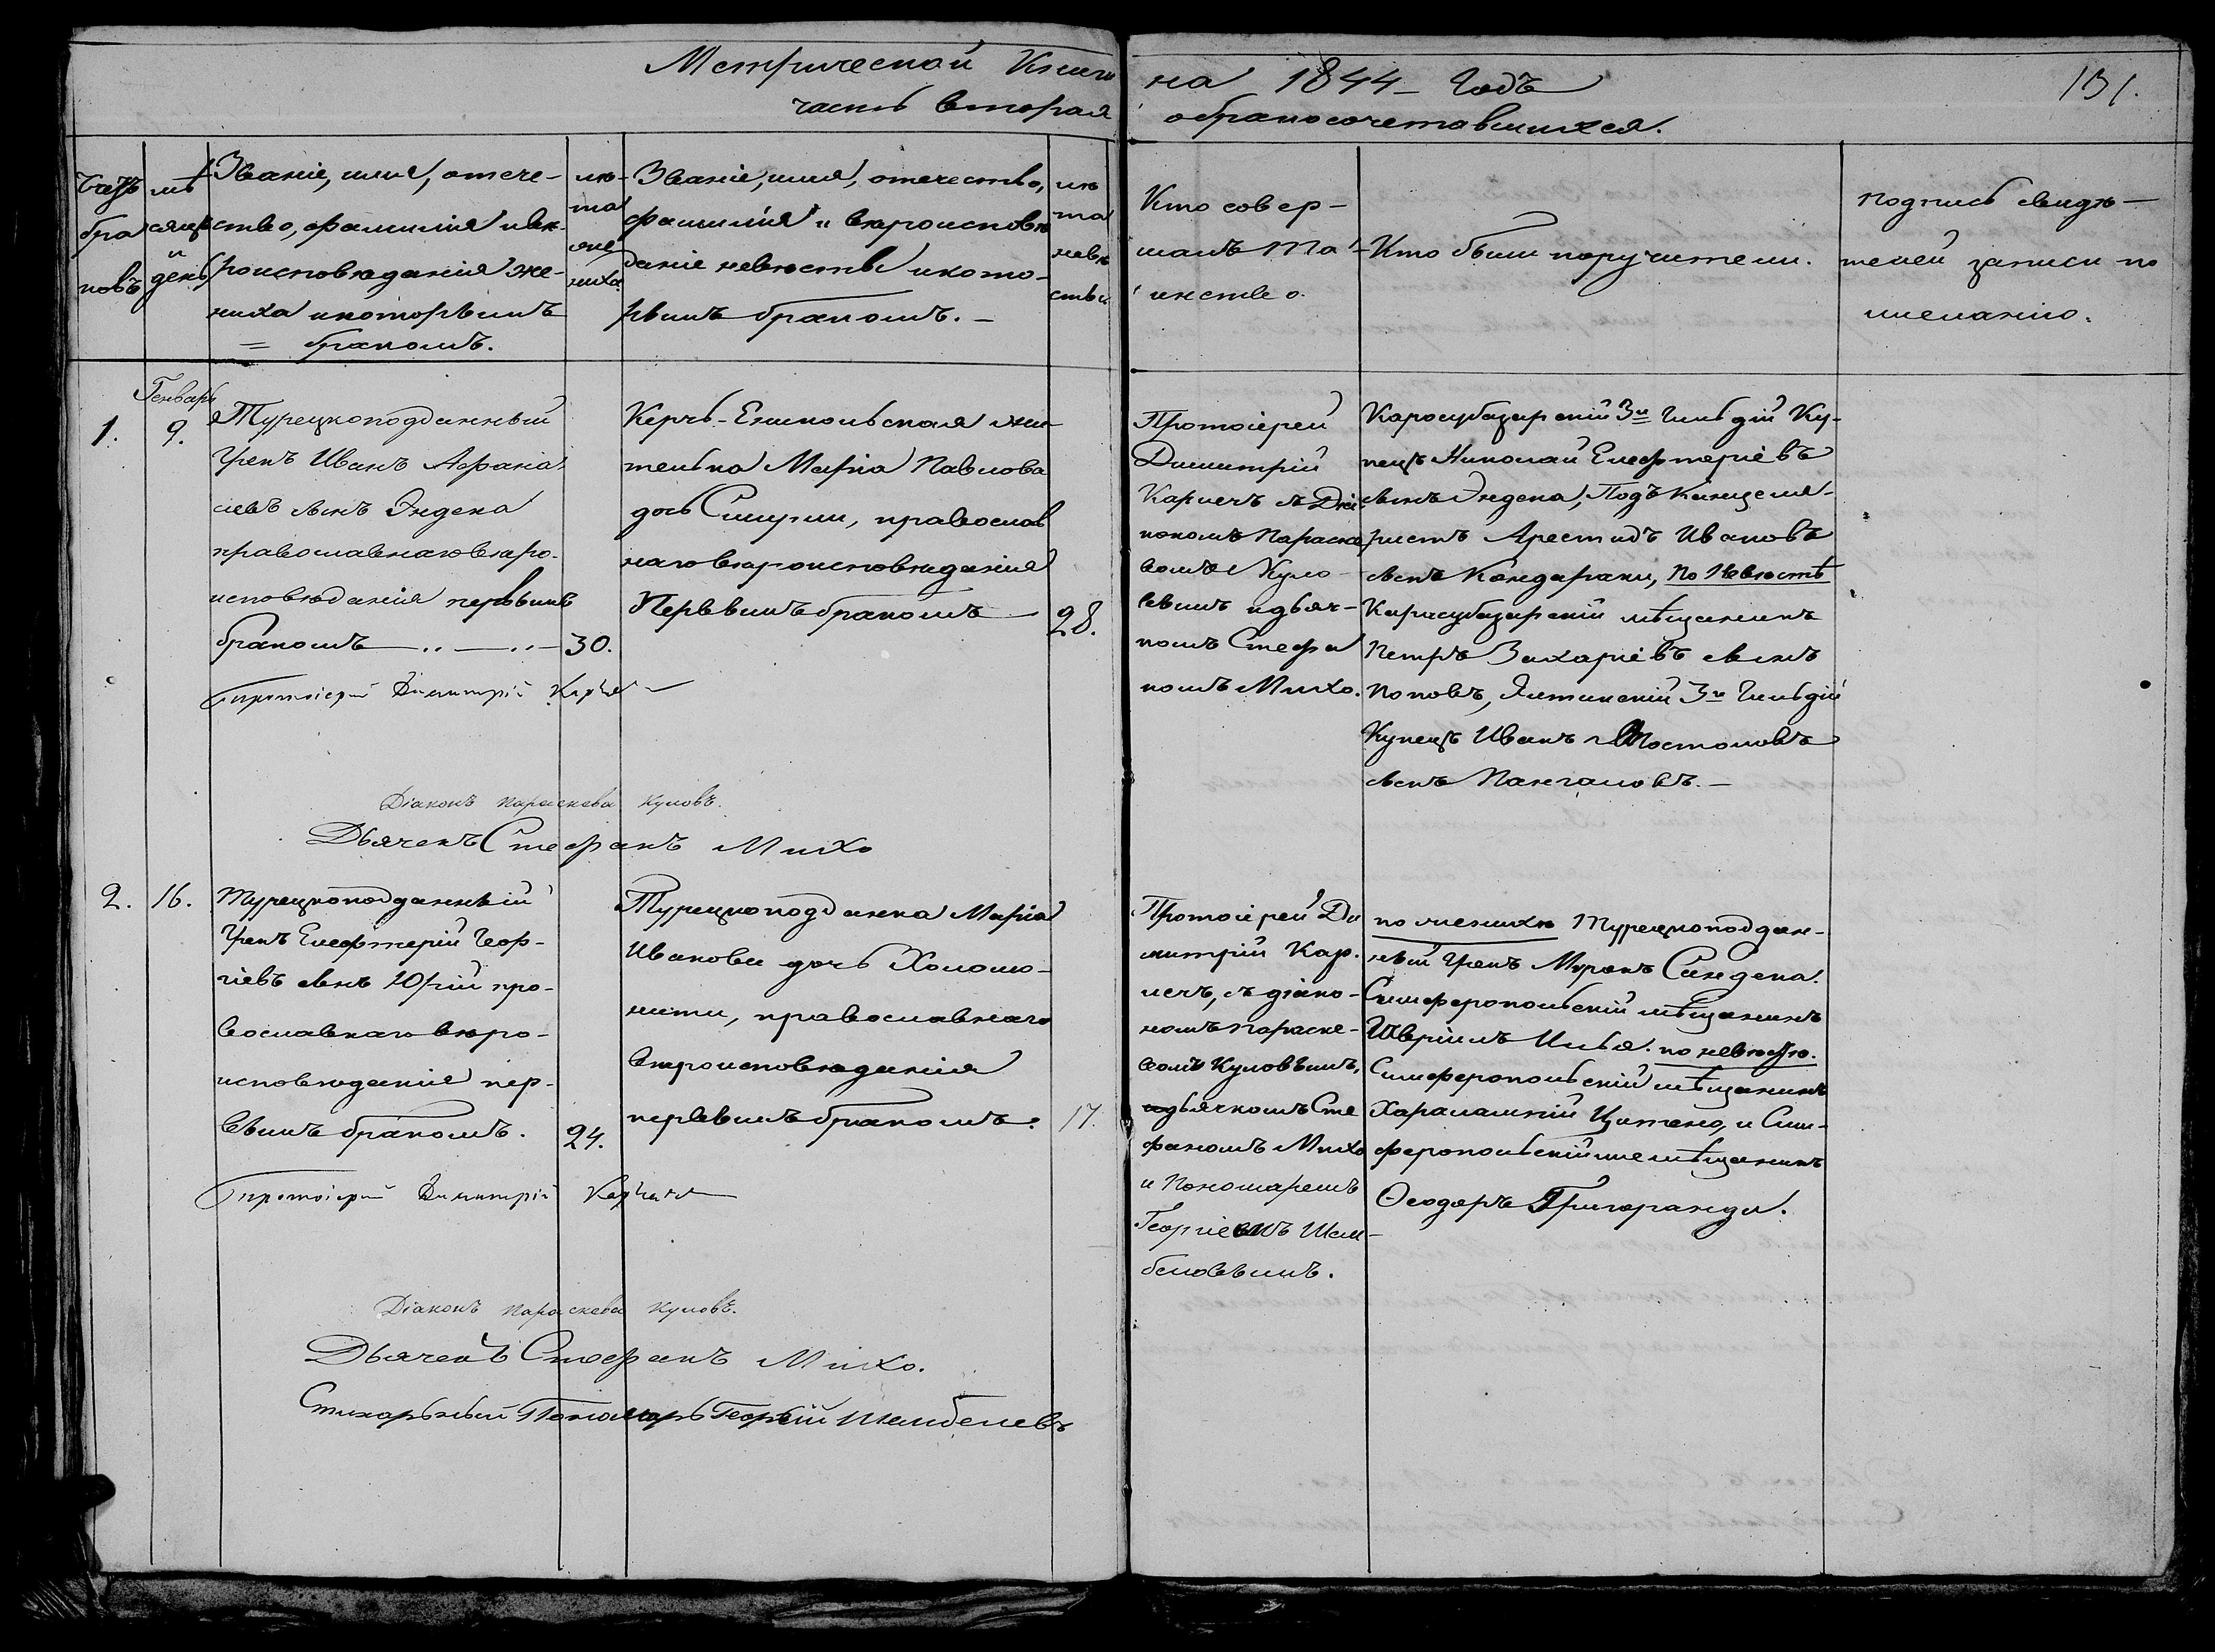 Метрической Книги на 1844 - Годъ
131.
часть вторая о бракосочетавшихся.
Счетъ
бра
ковъ
мѣ
сяцъ
и
день
Званіе, имя, отече-
ство, фамилія и вѣ-
роисповѣданія же-
ниха и которымъ
= бракомъ.
лѣ-
та
же
ниха
Званіе, имя, отечество,
фамилія и вѣроисповѣ
даніе невѣсты и кото-
рымъ бракомъ. -
лѣ
та
невѣ
сты
Кто совер-
шалъ Та-
инство.
Кто были поручители.
подпись свидѣ-
телей записи по
желанію.
Генварь
1.
9.
Турецкоподданный
Грекъ Иванъ Афана
сіевъ сынъ Эндека
православнаго вѣро-
исповѣданія первымъ
бракомъ
30.
Керчь-Еникольская жи-
телька Марія Павлова
дочь Синури, православ
наго вѣроисповѣданія
Первымъ бракомъ
28.
Протоіерей
Димитрій
Карпечъ съ Діа-
кономъ Параске
вомъ Куло-
вымъ и дьяч-
комъ Стефа
номъ Михо.
Карасубазарскій 3й Гильдіи Ку-
пецъ Николай Елефтеріевъ
сынъ Эндека; Подъ Канцеля-
ристъ Арестидъ Ивановъ
сынъ Кондараки, По Невѣстѣ
Карасубазарскій мѣщанинъ
Петръ Захаріевъ сынъ
Поповъ, Ялтинскій 3й Гильдіи
Купецъ Иванъ Апостоловъ
сынъ Пангаловъ. -
Протоіерей Димитрій Карпечъ
Діаконъ Параскева Куловъ.
Дьячекъ Стефанъ Михо
2.
16.
Турецкоподданный
Грекъ Елефтерій Геор-
гіевъ сынъ Юрій пра-
вославнаго вѣро-
исповѣданія пер-
вымъ бракомъ.
24.
Турецкоподданка Марія
Иванова дочь Холомо-
нити, православнаго
вѣроисповѣданія
первымъ бракомъ.
17.
Протоіерей Ди
митрій Кар-
печъ, съ діако-
номъ Параске-
вомъ Куловымъ,
дьячкомъ Сте
фаномъ Михо
и Пономаремъ
Георгіемъ Шам-
беловымъ.
по женихѣ Турецкоподдан-
ный Грекъ Миронъ Сандека.
Симферопольскій мѣщанинъ
Гавріилъ Илья. по невѣстѣ.
Симферопольскій мѣщанинъ
Харалампій Цитено, и Сим-
феропольскій же мѣщанинъ
Ѳеодоръ Григоранди.
Протоіерей Димитрій Карпечъ
Діаконъ Параскева Куловъ.
Дьячекъ Стефанъ Михо.
Стихарный Пономарь Георгій Шамбелевъ